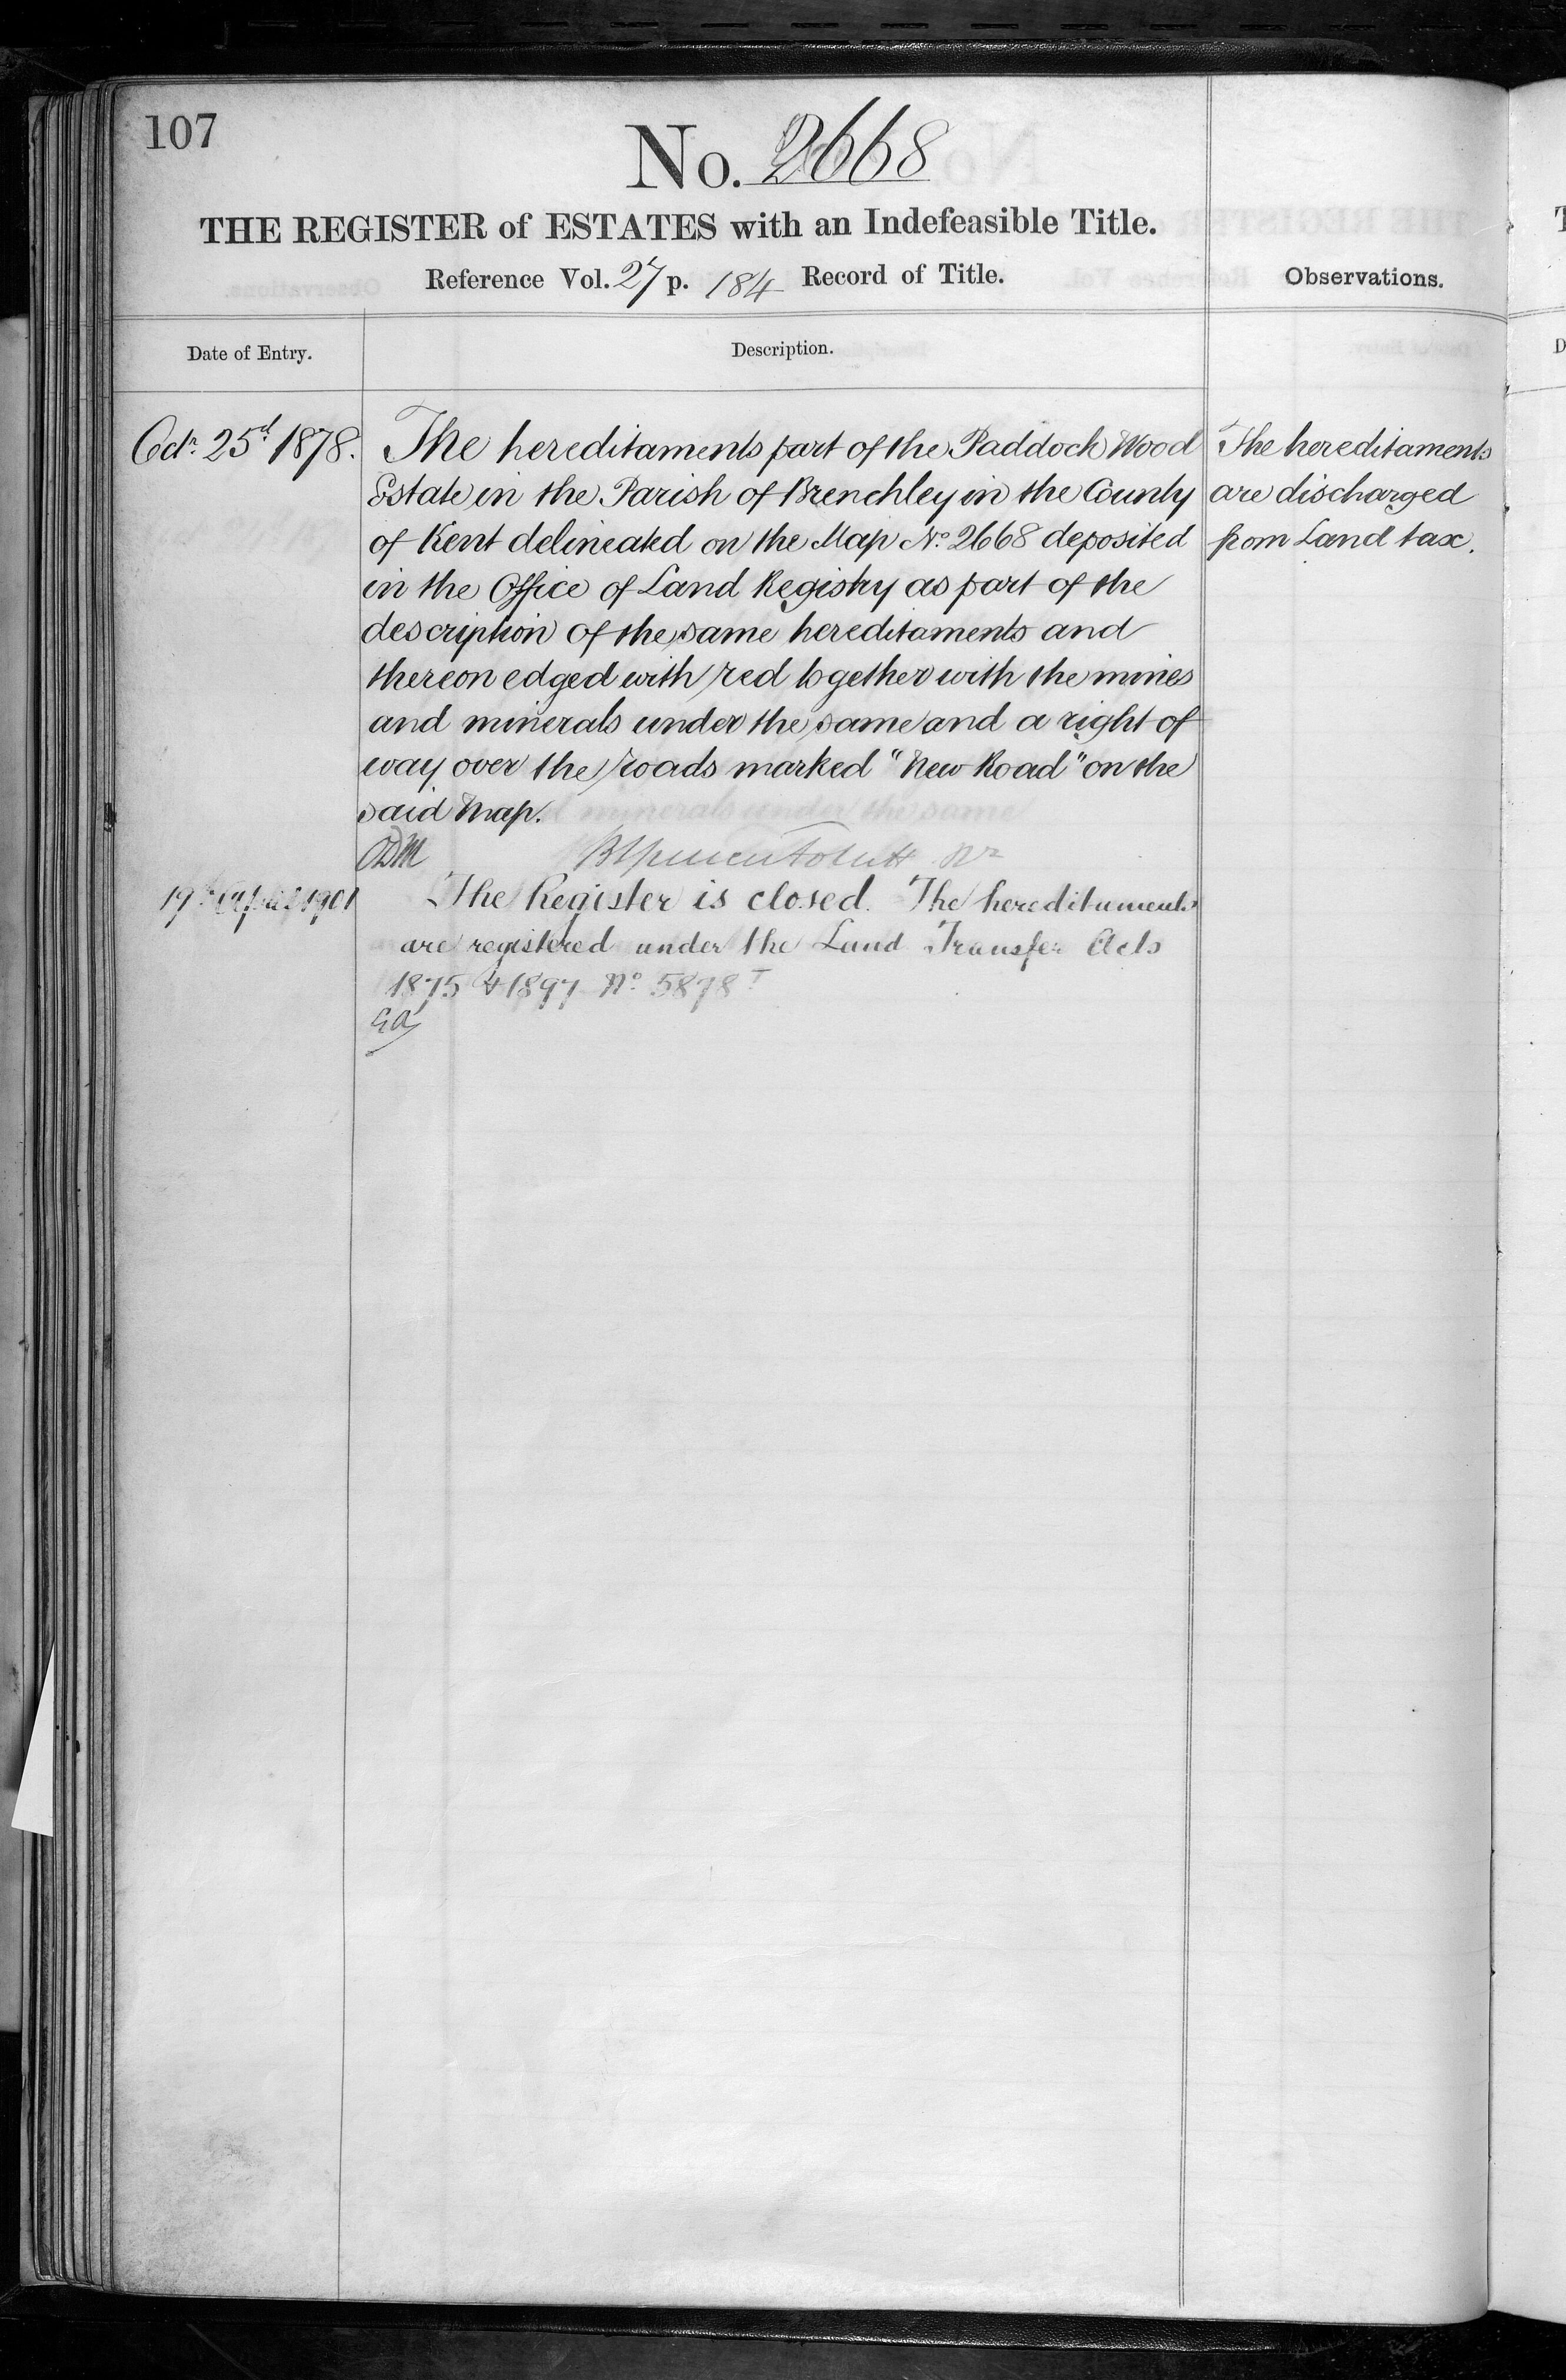 107
No. 2668
THE REGISTER of ESTATES with an Indefeasible Title.
Reference Vol. 27 p. 184 Record of Title.
Observations.
Date of Entry.
Description.
Octr. 25d. 1878.
The hereditaments part of the Paddock Wood
Estate in the Parish of Brenchley in the County
of Kent delineated on the Map No. 2668 deposited
in the Office of Land Registry as part of the
description of the same hereditaments and
thereon edged with red together with the mines
and minerals under the same and a right of
way over the roads marked "New Road" on the
said Map.
The hereditaments
are discharged
from Land tax.
19th April 1901
The Register is closed. The hereditaments
are registered under the Land Transfer Acts
1875 & 1897 No. 5878